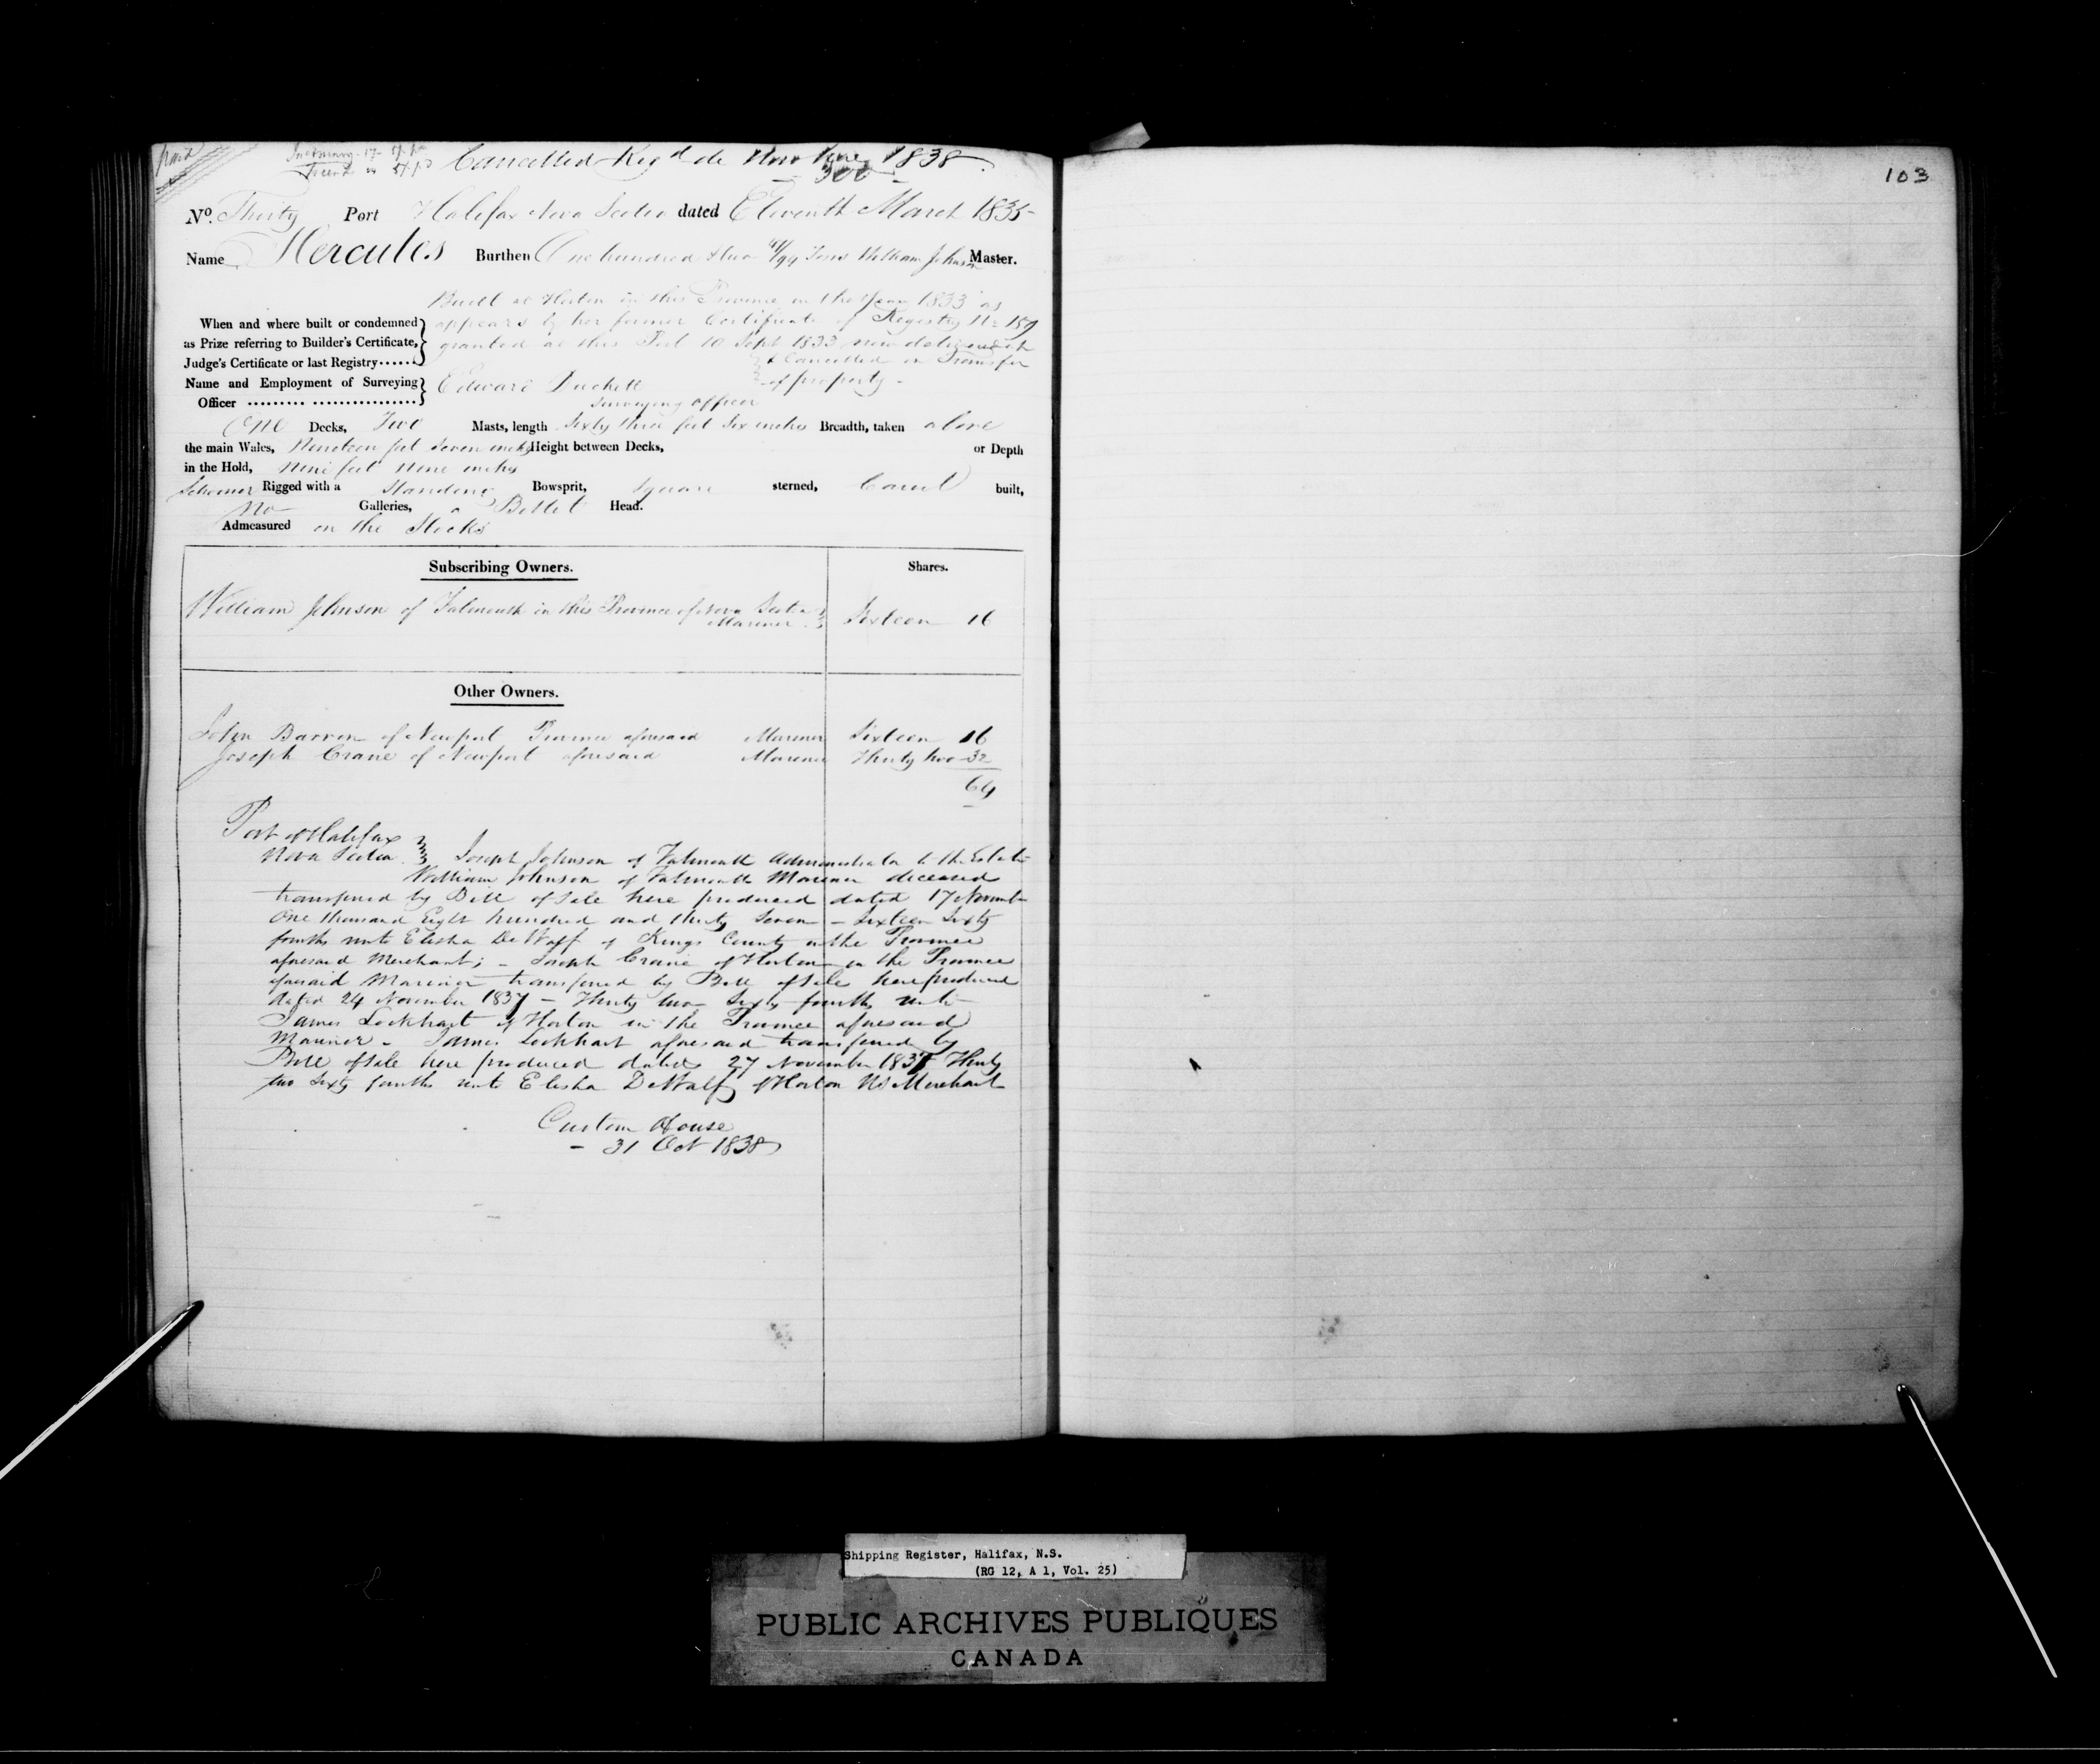 Cancelled Reg^d de Novo 1838
300
103
No. Thirty Port Halifax Nova Scotia dated Eleventh March 1835
Name Hercules Burthen One hundred & two 41/94 Tons William Johnson Master.
Built at Horton in this Province in the Year 1833 as
When and where built or condemned appears by her former Certificate of Registry No 159
as Prize referring to Builder's Certificate, granted at this Port 10 Sept 1833 now delivered up
Judge's Certificate or last Registry...... & Cancelled on Transfer
Name and Employment of Surveying Edward Duckett of property -
Officer ......... ................ Surveying officer
One Decks, Two Masts, length Sixty three feet Six inches Breadth, taken above
the main Wales, Nineteen feet Seven inches Height between Decks, or Depth
in the Hold, Nine feet nine inches
Schooner Rigged with a Standing Bowsprit, Square sterned, Carvel built,
No Galleries, a Billet Head.
Admeasured on the Stocks
Subscribing Owners. Shares.
William Johnson of Falmouth in this Province of Nova Scotia
Mariner Sixteen 16
Other Owners.
John Barron of Newport Province aforesaid Mariner Sixteen 16
Joseph Crane of Newport aforesaid Mariner Thirty two 32
64
Port of Halifax
Nova Scotia Joseph Johnson of Falmouth Administrator to the Estate
William Johnson of Falmouth Mariner deceased
transferred by Bill of Sale here produced dated 17 November
One thousand Eight hundred and thirty Seven - Sixteen Sixty
fourths unto Elisha DeWolf of Kings County in the Province
aforesaid Merchant; - Joseph Crane of Horton in the Province
aforesaid Mariner transferred by Bill of Sale here produced
dated 24 November 1837 - Thirty two Sixty fourths unto
James Lockhart of Horton in the Province aforesaid
Mariner - James Lockhart aforesaid transferred by
Bill of Sale here produced dated 27 November 1837 Thirty
two Sixty fourths unto Elisha DeWolf of Horton NS Merchant
Custom House
- 31 Oct 1838
Shipping Register, Halifax, N.S.
(RG 12, A 1, Vol. 25)
PUBLIC ARCHIVES PUBLIQUES
CANADA